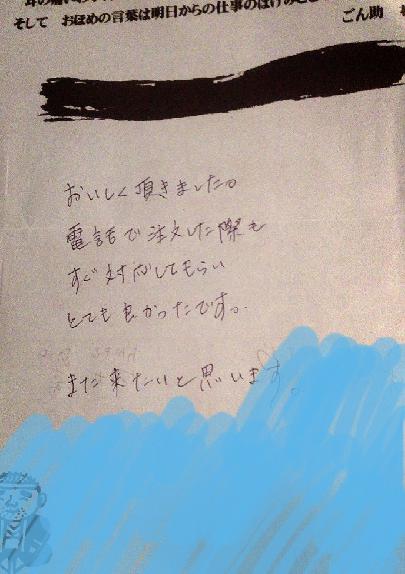 そして おほめの言葉は明日からの仕事のはげみと
ごん助
おいしく頂きました。
電話で注文した際も
すぐ対応してもらい
とても良かったです。
また来たいと思います。